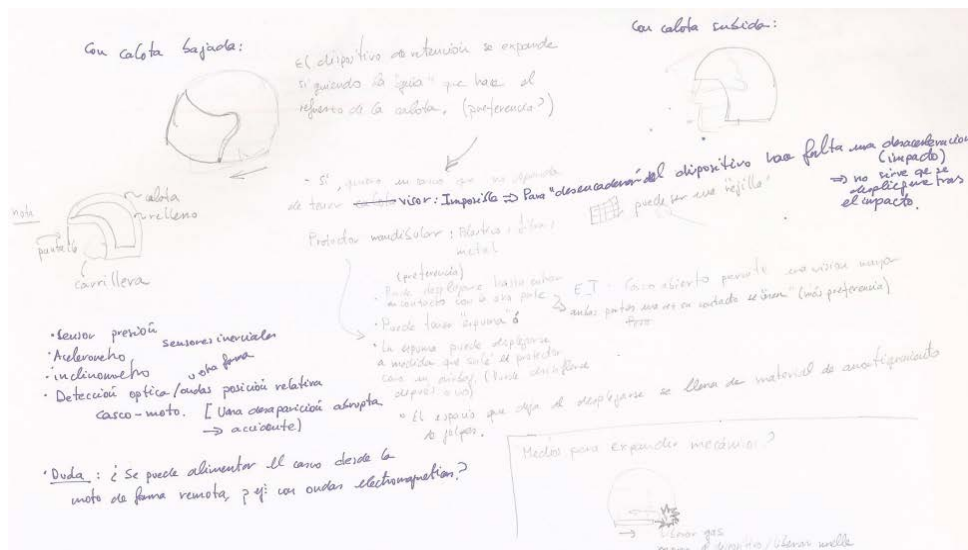 Con calota bajada:
El dispositivo de retención se expande
siguiendo la "guía" que hace el
refuerzo de la calota. (preferencia?)
Con calota subida:
nota
calota
relleno
pantalla
carrillera
- Si, quiero un casco que no
de tener visor: Imposible ⇒ Para "desencadenar" el dispositivo hace falta una desaceleración
(impacto)
⇒ no sirve que se
despliegue tras
el impacto.
puede ser una "rejilla"
Protector mandibular: Plástico,
metal
(preferencia)
Puede desplegarse hasta entrar
en contacto con la otra parte
Casco abierto permite una visión mayor
ambas partes (más preferencia)
• Puede tener "espuma" ó
• La espuma puede desplegarse
a medida que sale el protector
como un airbag. (Puede
después o no)
• El espacio que deja al desplegarse se llena de material de amortiguamiento
de golpes.
• Sensor presión
• Acelerómetro sensores inerciales
• inclinometro u otra forma
• Detección optica/ondas posición relativa
casco-moto. [Una desaparición abrupta
→ accidente)
• Duda: ¿Se puede alimentar el casco desde la
moto de forma remota, p ej: con ondas electromagneticas?
Medios para expandir mecánico?
liberar gas